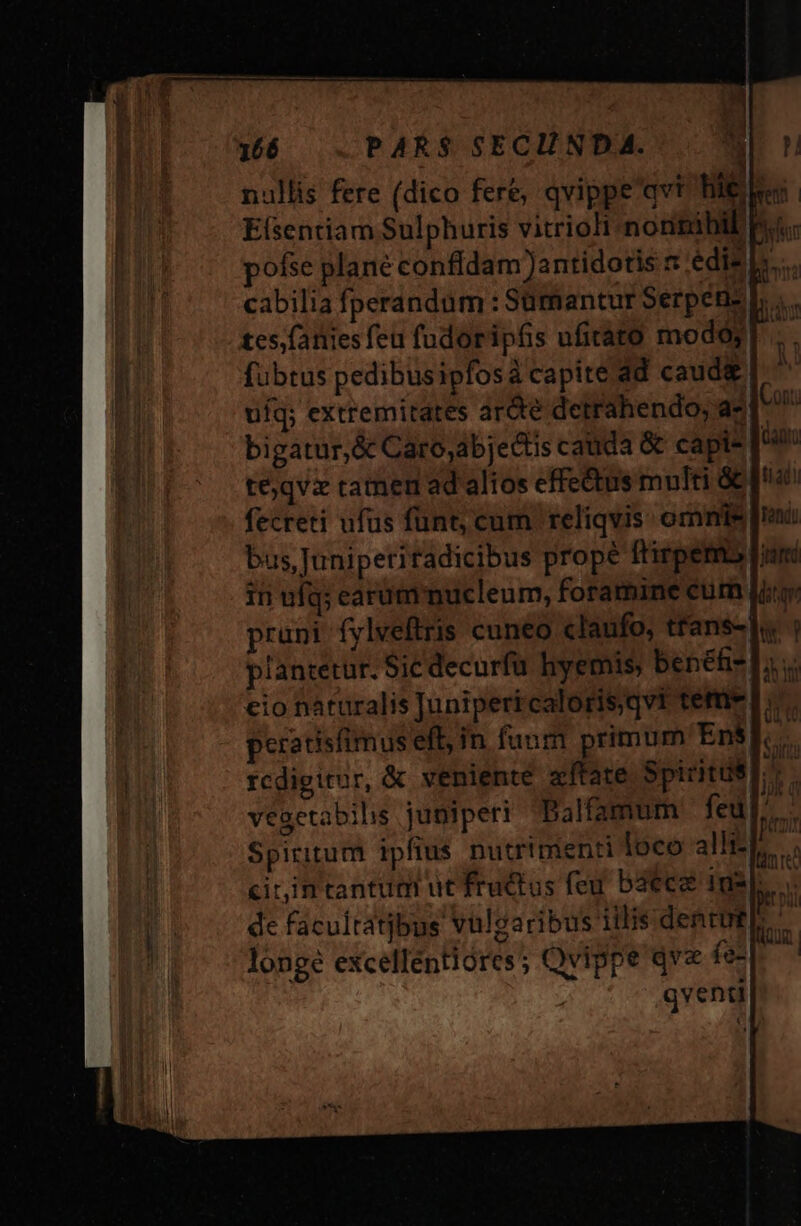 166 PARS SECUNDA.
nullis fere (dico ferè, qvippe qvi hic
Eſsentiam Sulphuris vitrioli nonnihil
poſse planè confīdam) antidotis
cabilia ſperandum: Sumantur Serpen-
tes, ſanies ſeu ſudor ipſis uſitato modo,
ſubtus pedibus ipſos à capite ad caudæ
uſq; extremitates arctè detrahendo, a-
bigatur, & Caro, abjectis cauda & capi-
te, qvæ tamen ad alios effectus multi &
ſecreti uſus ſunt, cum reliqvis omni-
bus, Juniperi radicibus propè ſtirpem,
in uſq; earum nucleum, foramine cum
pruni ſylveſtris cuneo clauſo, trans-
plantetur. Sic decurſu hyemis, benéfi-
cio naturalis Juniperi caloris, qvi tem-
peratisſimus eſt, in ſuum primum Ens
redigitur, & veniente æſtate Spiritus
vegetabilis juniperi Balſamum ſeu
Spiritum ipſius nutrimenti loco alli-
cit, in tantum ut fructus ſeu baccæ in-
de facultatjbus vulgaribus illis dentur
longè excellentiores; Qvippe qvæ ſe-
qventi